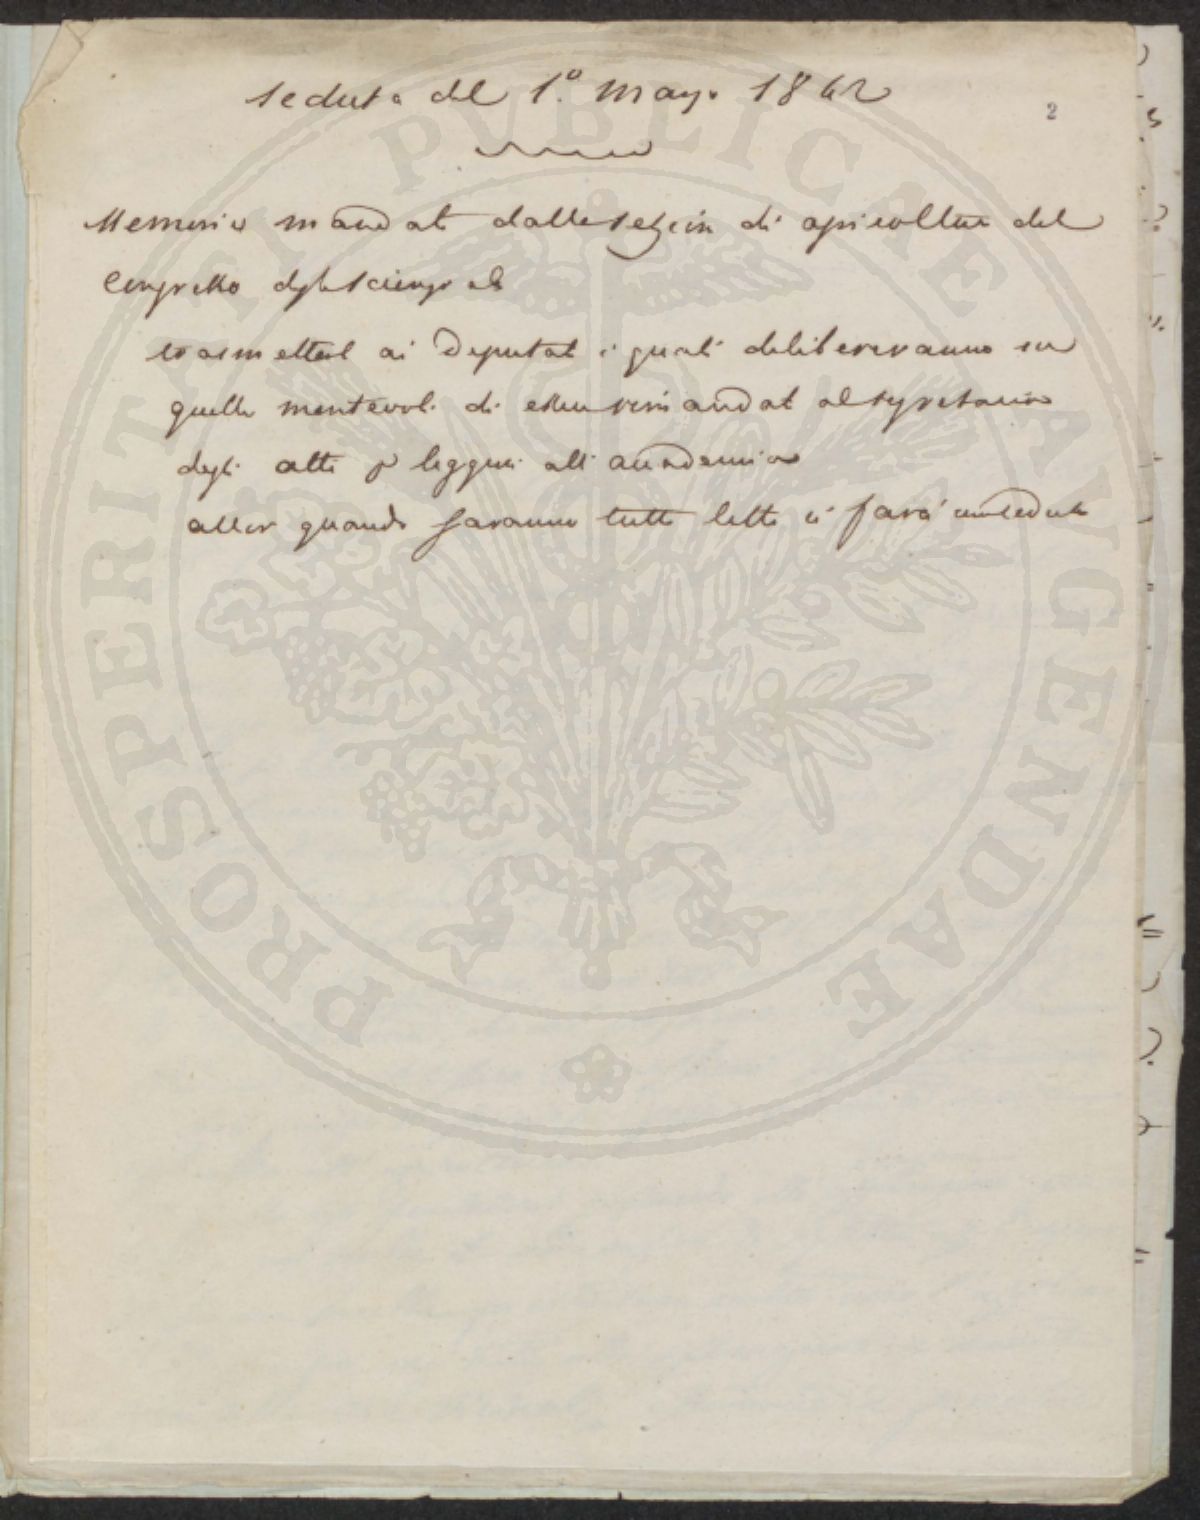 Seduta del 1.º Mayo 1862
2
Memorie mandate dalla sezion di apicoltura del
Congresso degli scienziati
trasmetterl ai Deputati i quali delibereranno su
quelle meritevoli di essere mandate al segretario
degli atti p leggersi all'accademia
allor quando saranno tutte lette si farà
PROSPERITATI PVBLICAE AVGENDAE